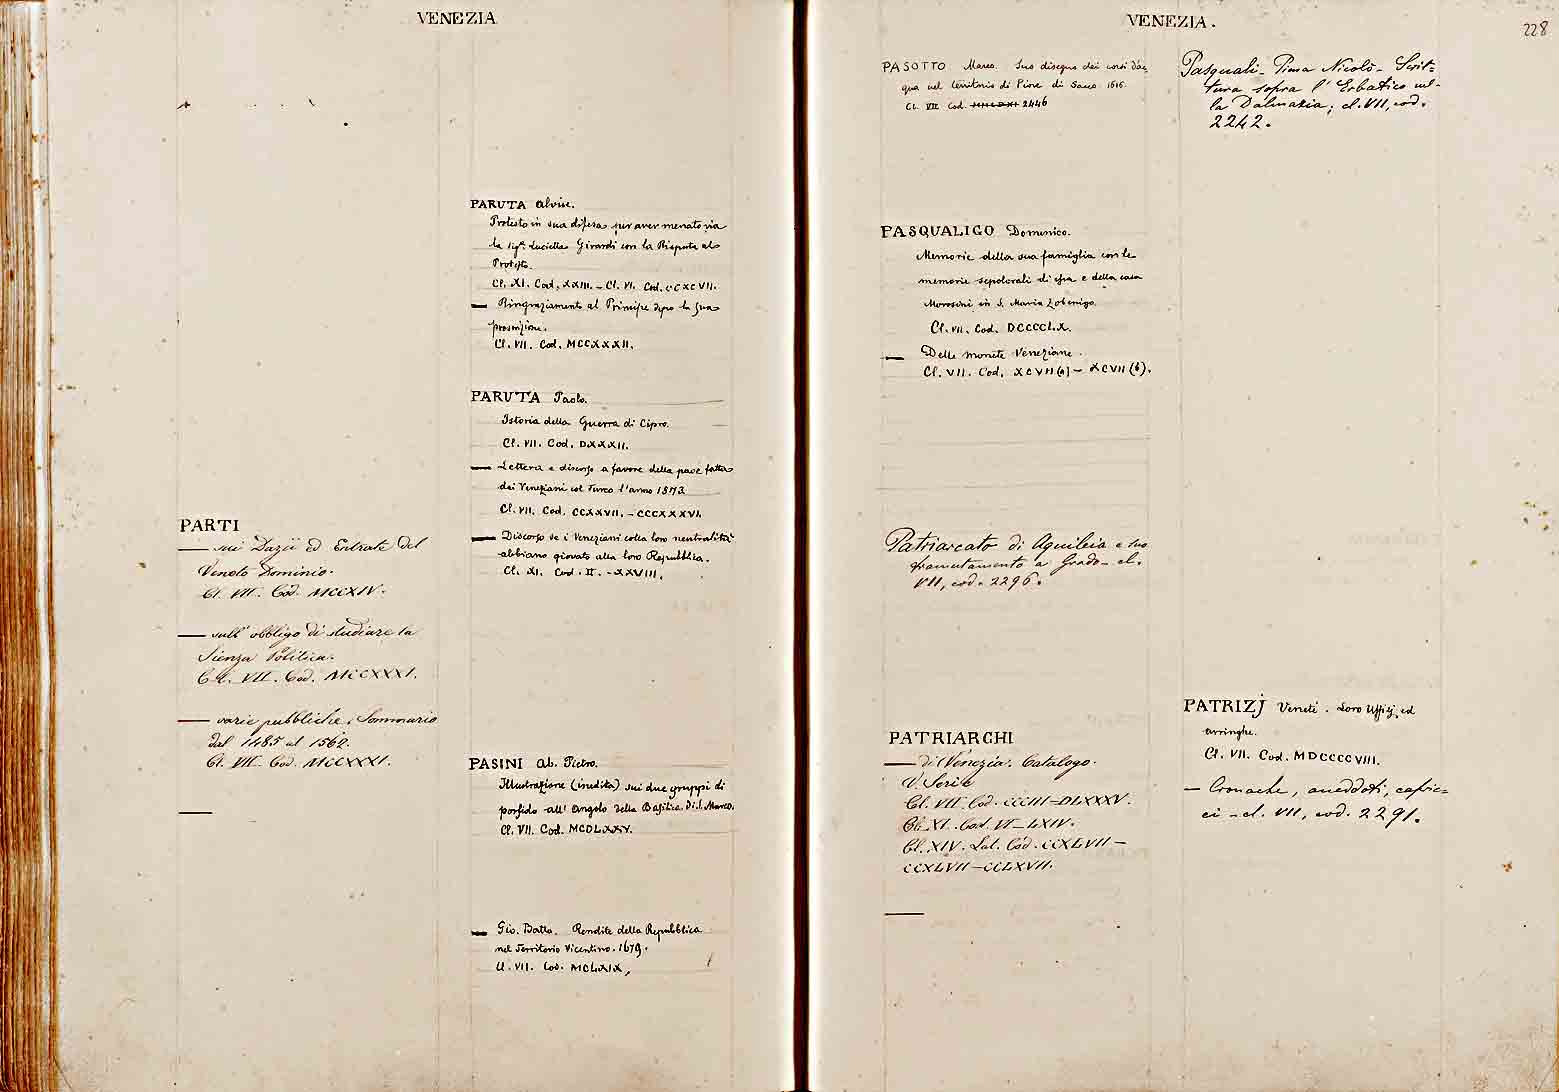 VENEZIA
PARTI
— sui Dazii ed Entrate del
Veneto Dominio.
Cl. VII. Cod. MCCXIV.
— sull' obbligo di studiare la
Sienza Politica.
Cl. VII. Cod. MCCXXXI.
— varie pubbliche, Sommario
dal 1485 al 1562.
Cl. VII. Cod. MCCXXXI.
—
PARUTA Alvise.
Protesto in sua difesa per aver menato via
la sigª. Lucietta Girardi con la Risposta al
Protesto.
Cl. XI. Cod. XXIII. – Cl. VI. Cod. CCXCVII.
— Ringraziamento al Principe dopo la sua
proscrizione.
Cl. VII. Cod. MCCXXXII.
PARUTA Paolo.
Istoria della Guerra di Cipro.
Cl. VII. Cod. DXXXII.
— Lettera e discorso a favore della pace fatta
dai Veneziani col Turco l'anno 1573.
Cl. VII. Cod. CCXXVII. – CCCXXXVI.
— Discorso se i Veneziani colla loro neutralità
abbiano giovato alla loro Repubblica.
Cl. XI. Cod. II. – XXVIII.
PASINI Ab. Pietro.
Illustrazione (inedita) sui due gruppi di
porfido all' angolo della Basilica di S. Marco.
Cl. VII. Cod. MCDLXXV.
— Gio. Batta. Rendite della Repubblica
nel Territorio Vicentino. 1679.
Cl. VII. Cod. MCLXIX,
VENEZIA.
228
PASOTTO Marco. Suo disegno dei corsi d'ac-
qua nel territorio di Piove di Sacco 1616.
Cl. VII Cod. 2446
PASQUALIGO Domenico.
Memorie della sua famiglia con le
memorie sepolcrali di essa e della casa
Morosini in S. Maria Zobenigo.
Cl. VII. Cod. DCCCCLX.
— Delle monete Veneziane.
Cl. VII. Cod. XCVII(a) – XCVII(b).
Patriarcato di Aquileia e suo
tramutamento a Grado – cl.
VII, cod. 2296.
PATRIARCHI
— di Venezia. Catalogo.
V. Serie
Cl. VII. Cod. CCCIII–DLXXXV.
Cl. XI. Cod. VI–LXIV.
Cl. XIV. Lat. Cod. CCXLVII–
CCXLVII–CCLXVII.
—
Pasquali – Pinsa Nicolò – Scrit=
tura sopra l'Erbatico nel-
la Dalmazia; cl. VII, cod.
2242.
PATRIZJ Veneti. Loro Uffizj, ed
arringhe.
Cl. VII. Cod. MDCCCCVIII.
— Cronache, aneddoti, capric=
ci – cl. VII, cod. 2291.